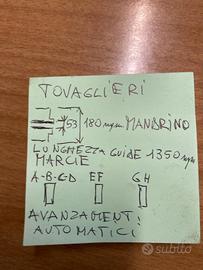 TOVAGLIERI
53 180 mm MANDRINO
LUNGHEZZA GUIDE 1350 mm
MARCIE
A-B-C-D EF GH
AVANZAMENTI
AUTOMATICI
subito